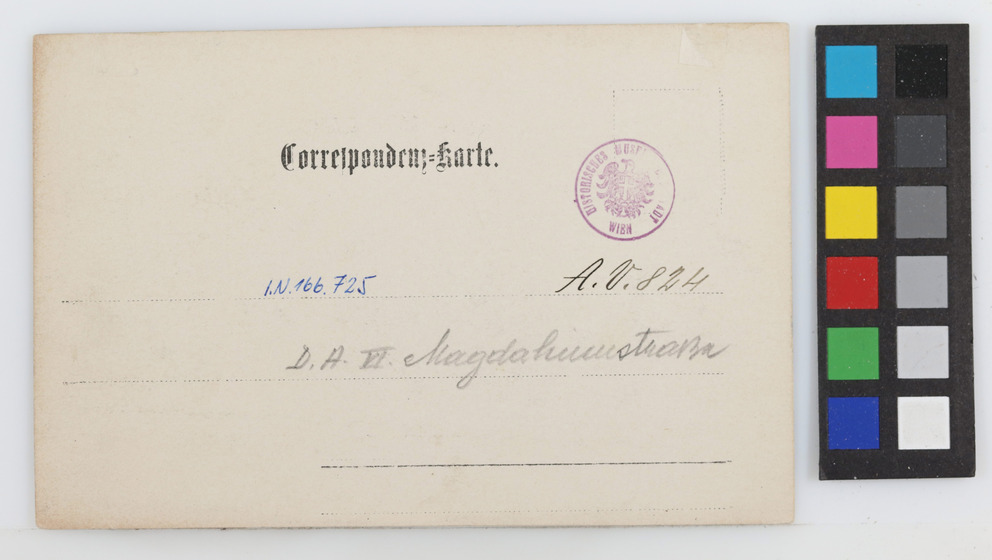 Correspondenz=Karte.
HISTORISCHES MUSE STADT WIEN
I.N.166.725
A.V.824
D. A. VI. Magdalenenstraße